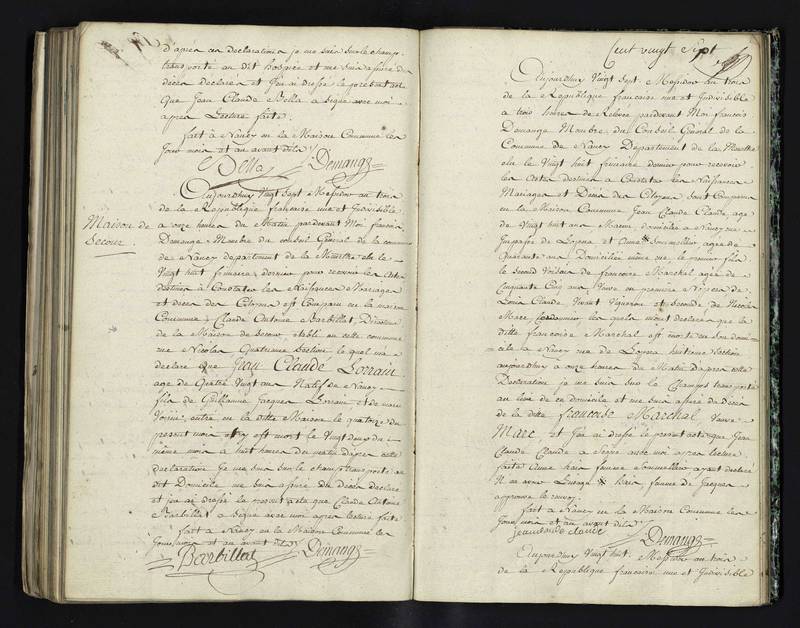 d'après cn declaration je me suis sur le champ
transporté au dit hospice et me suis assuré du
décès declaré et j'en ai dressé le present acte
que Jean Claude Bella a signé avec moi
après lecture faite.
fait à Nancy en la Maison Commune les
jour mois et an avant dits
Bella Demange
Aujourdhuy Vingt Sept Messidor an trois
de la République francaise une et Indivisible
Maison de
Secour
à onze heures du Matin pardevant Moi francois
Demange Membre du conseil Général de la commune
de Nancy departement de la Meurthe elu le
Vingt huit frimaire dernier pour recevoir les Actes
destinés à Constater les Naissances Mariages
et décès des Citoyens est Comparu en la maison
Commune, Claude Antoine Barbillat, Directeur
de la Maison de Secour établi en cette commune
rue Nicolas quatrieme Section lequel ma
déclaré que Jean Claude Lorrain
age de quatre Vingt ans Natif de Nancy
fils de Guillaume Jacques Lorrain et de marie
Voirin, entré en la ditte Maison le quatorze du
present mois y est mort le Vingt deux du
même mois à huit heures du matin d'après cette
déclaration je me suis sur le champ transporté au
dit Domicile me suis assuré du Décès déclaré
et j'en ai dressé le present acte que Claude Antoine
Barbillat a signé avec moi après lecture faite
fait à Nancy en la Maison Commune les
jour mois et an avant dits
Barbillat Demange
Cent vingt Sept
Aujourdhuy Vingt Sept Messidor an trois
de la République francaise une et Indivisible
à trois heures de Relevée pardevant Moi francois
Demange Membre du Conseil Général de la
Commune de Nancy Département de la Meurthe
elu le Vingt huit frimaire dernier pour recevoir
les Actes destinés à Constater les Naissances
Mariages et Décès des Citoyens sont Comparus
en la Maison Commune Jean Claude Claude age
de Vingt huit ans domicilié à Nancy rue
et Anne Sommellier agée de
quarante ans Domiciliée même rue le premier fils
le second Voisin de francoise Marchal agée de
Cinquante Cinq ans Veuve en première Nôces de
Louis Claude Vivant Vigneron et seconde de Nicolas
Marc Cordonnier, les quels mont déclaré que la
ditte francoise Marchal est morte en son domi-
cile à Nancy rue de huitieme Section
aujourdhuy à onze heures du Matin d'après cette
Déclaration je me suis sur le Champ transporté
au lieu de ce domicile et me suis assuré du Décès
de la ditte francoise Marchal Veuve
Marc, et j'en ai dressé le present acte que Jean
Claude Claude a Signé avec moi après lecture
faite Anne femme Sommellier ayant declaré
N en avoir L'usage femme de Jacques
approuvé le renvoy.
fait à Nancy en la Maison Commune les
jour mois et an avant dits
jean claude claude Demange
Aujourdhuy Vingt huit Messidor an trois
de la République francaise une et Indivisible